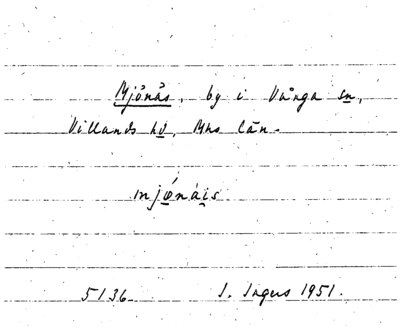 Mjönäs, by i Vånga sn,
Villands hd, Khs län.
mjǿnái̯s
5136. I. Ingers 1951.